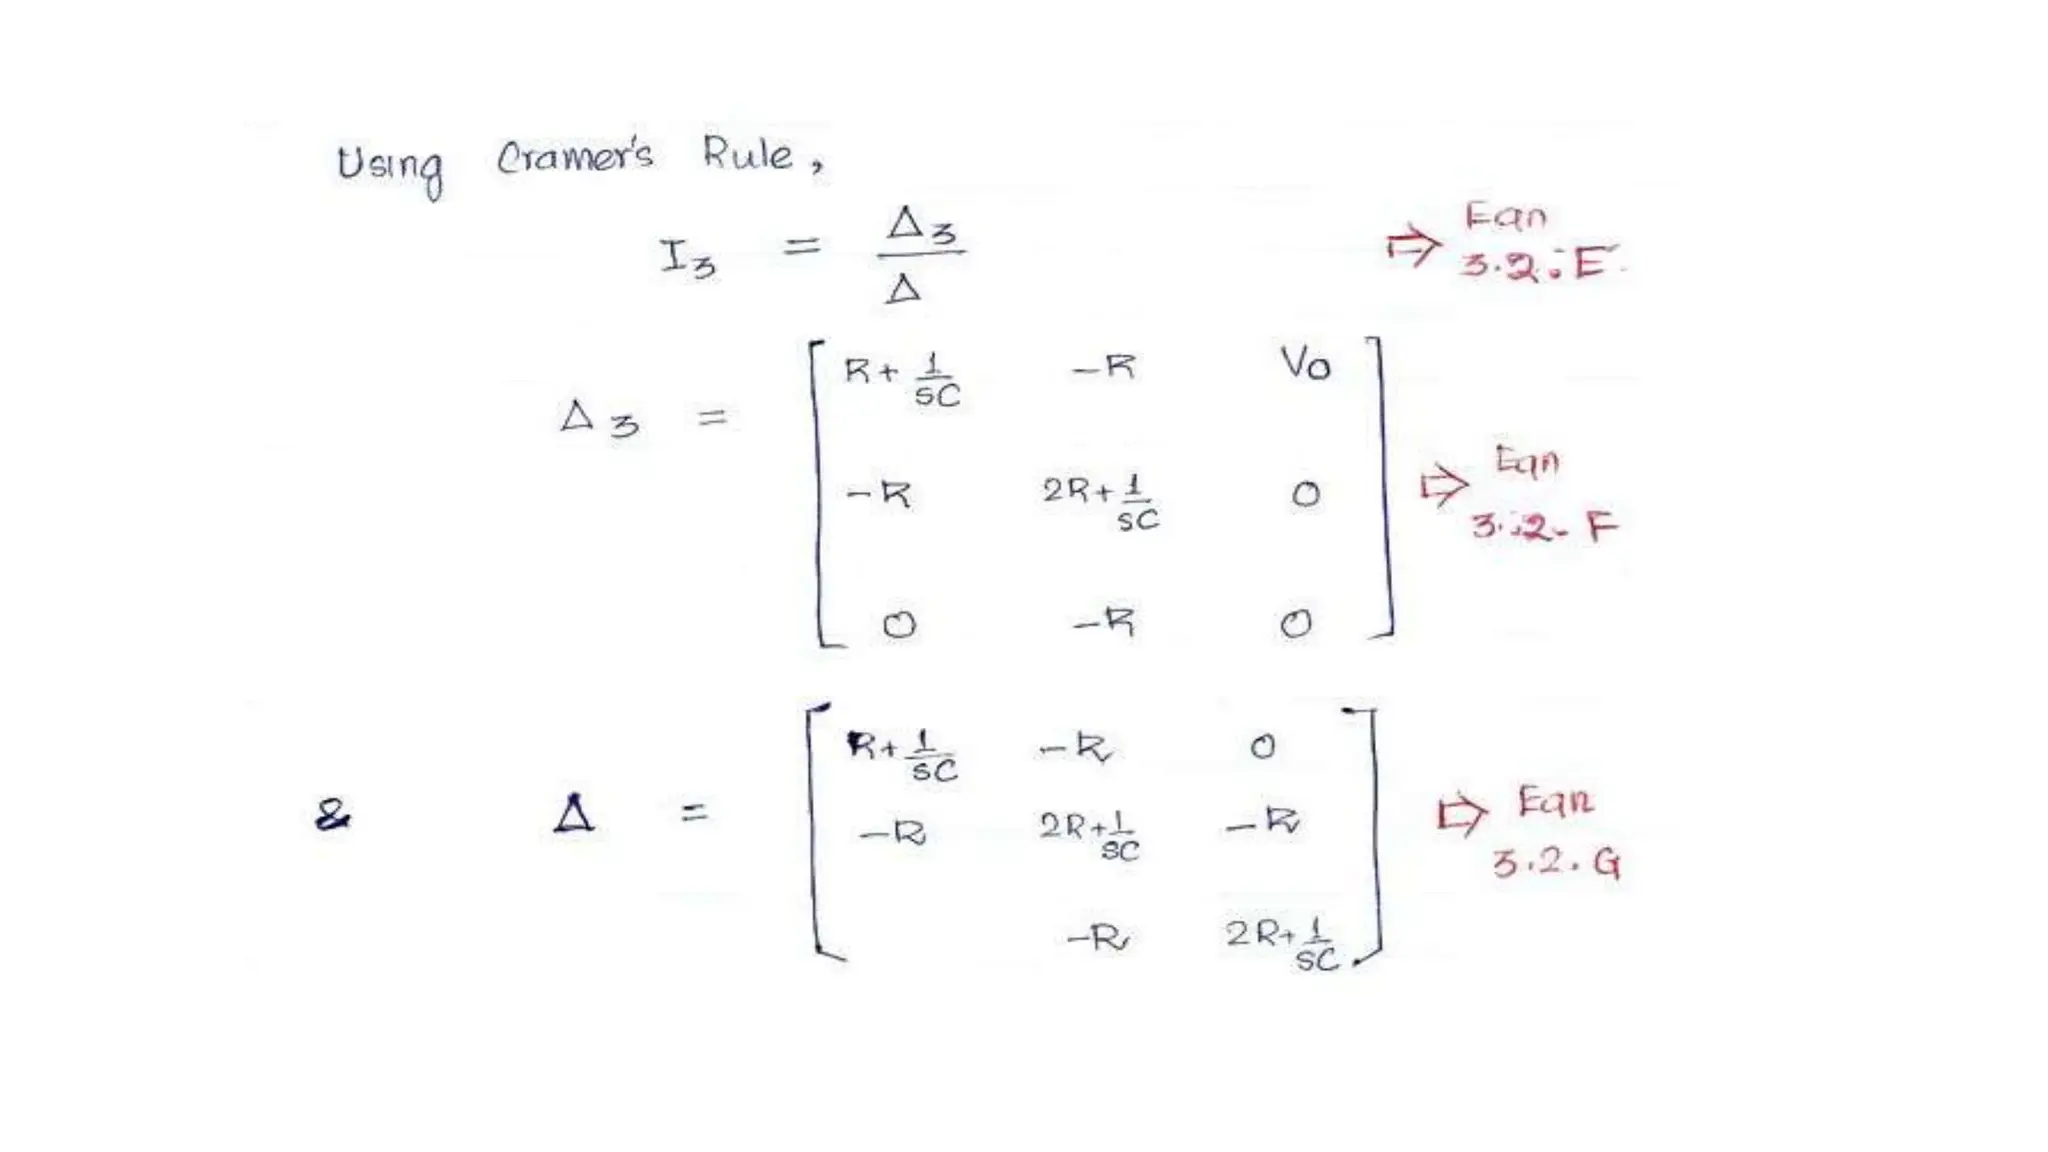 Using Cramer's Rule,
I3 = Δ3 / Δ ⇨ Eqn 3.2.E.
Δ3 = [ R + 1/SC -R Vo
-R 2R + 1/SC 0
0 -R 0 ] ⇨ Eqn 3.2.F
& Δ = [ R + 1/SC -R 0
-R 2R + 1/SC -R
-R 2R + 1/SC ] ⇨ Eqn 3.2.G